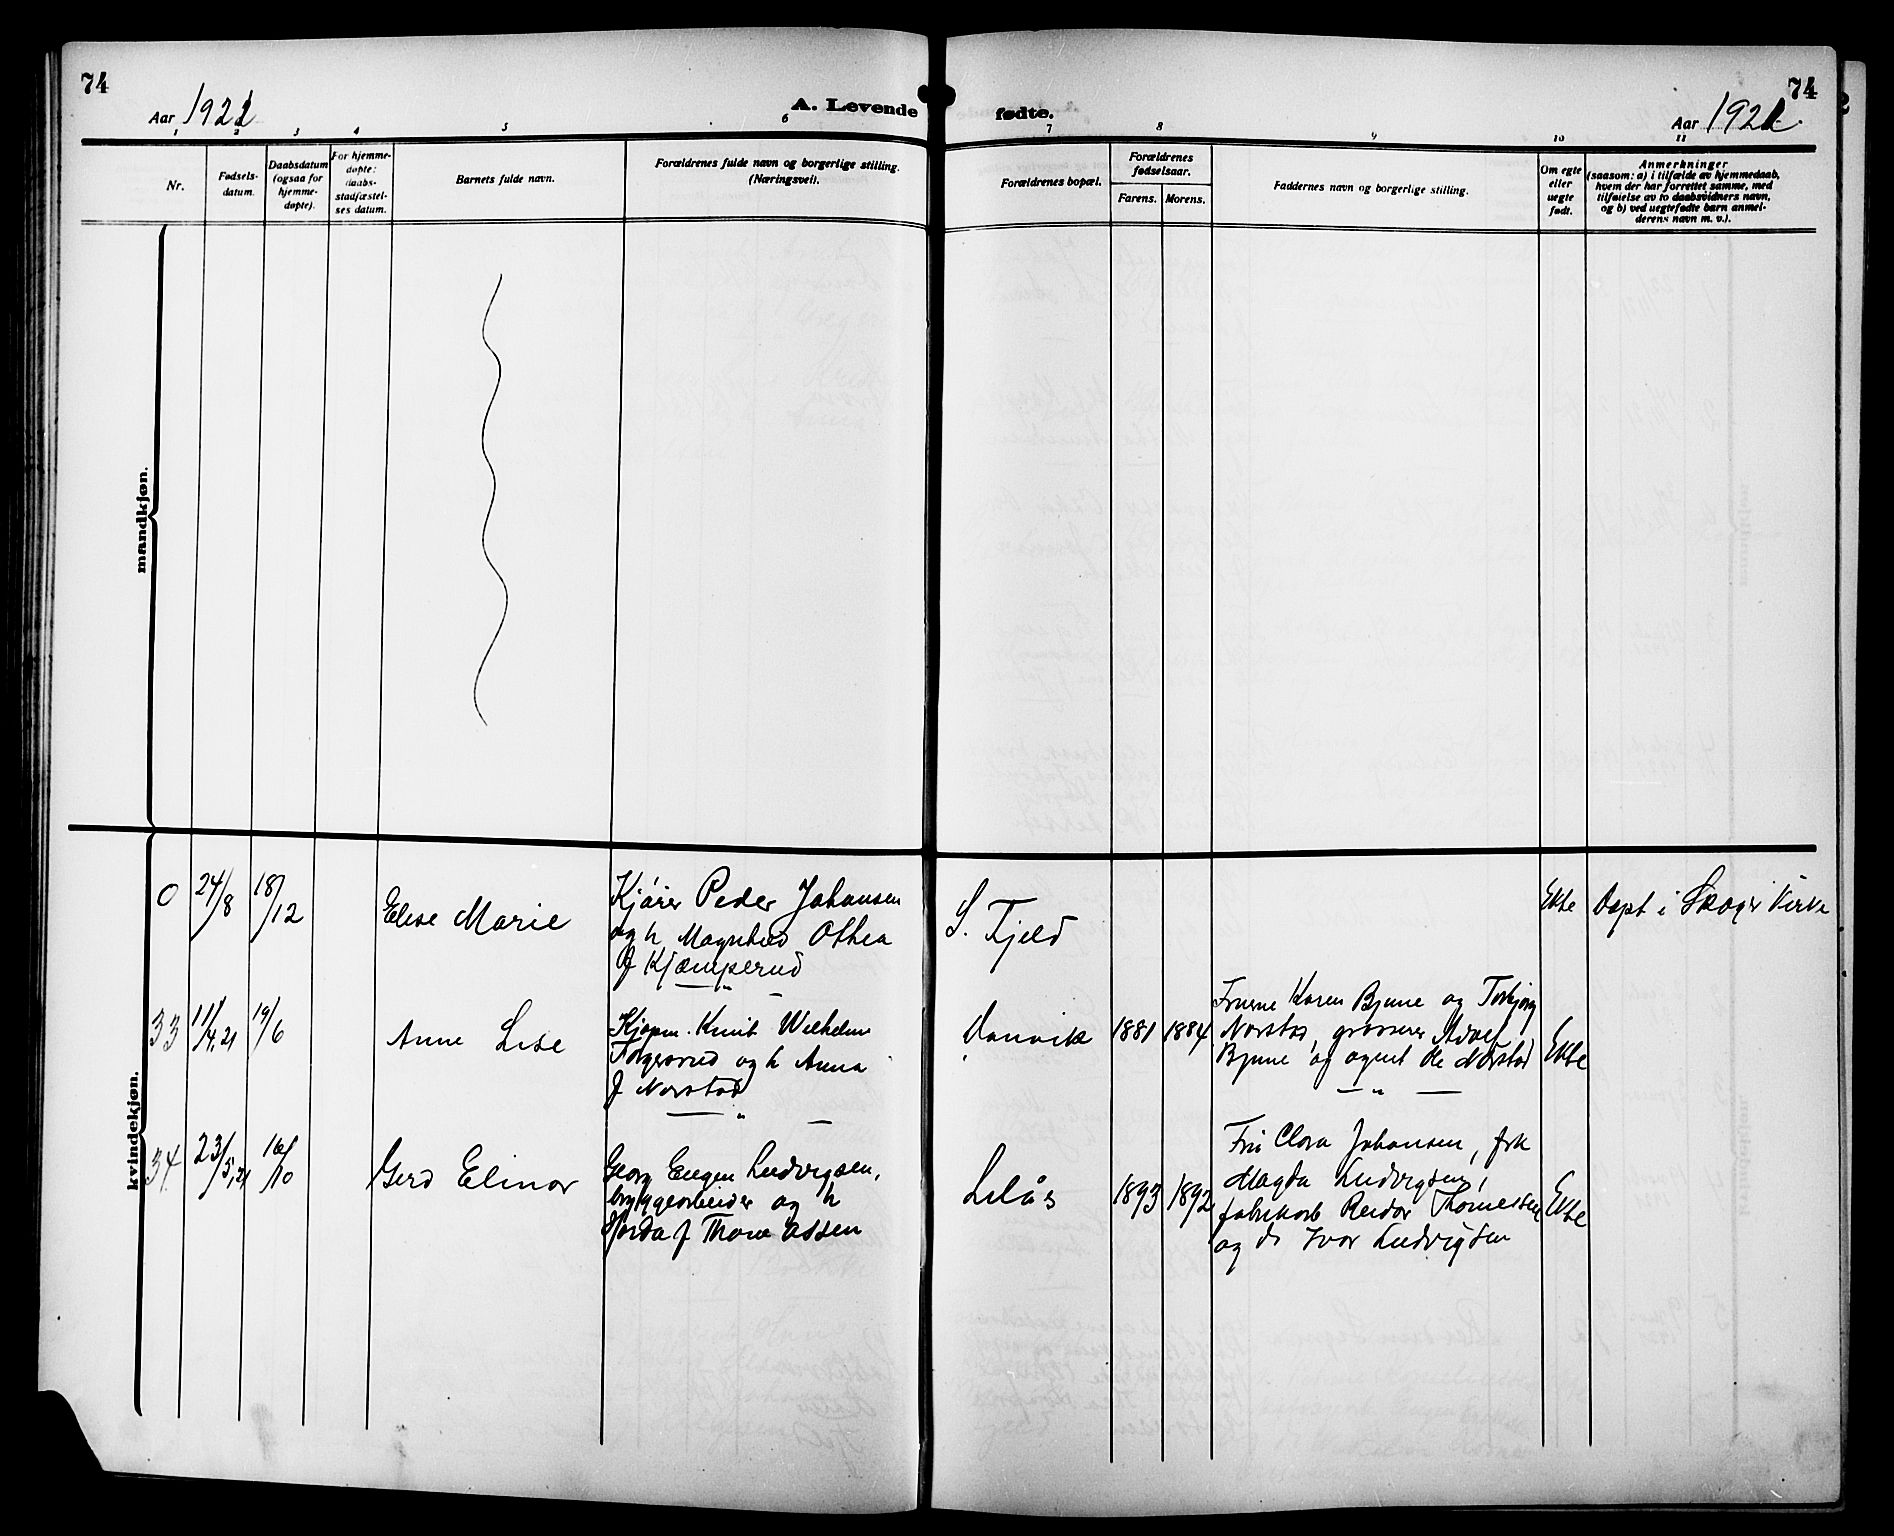 74
74
Aar 1921
A. Levende
fødte.
Aar 1921.
1 2 3 4 5 6
7 8 9 10 11
Nr.
Fødsels-
datum.
Daabsdatum
(ogsaa for
hjemme-
døpte).
For hjemme-
døpte:
daabs-
stadfæstel-
ses datum.
Barnets fulde navn.
Forældrenes fulde navn og borgerlige stilling.
(Næringsvei).
Forældrenes bopæl.
Forældrenes
fødselsaar.
Farens. Morens.
Faddernes navn og borgerlige stilling.
Om egte
eller
uegte
født.
Anmerkninger
(saasom: a) i tilfælde av hjemmedaab,
hvem der har forrettet samme, med
tilføielse av to daabsvidners navn,
og b) ved uegtefødte barn anmel-
derens navn m. v.).
mandkjøn.
kvindekjøn.
0 24/8 18/12 Elise Marie
Kjører Peder Johansen
og h Magnhild Othea
f Kjæmperud
S. Fjeld
Ekte
Døpt i Skoger kirke
33 11/4.21 19/6 Anne Lise
Kjøpm. Knut Wilhelm
og h Anna
f Norstad
Danvik 1881 1884
Fruerne Karen Bjune og Torbjørg
Norstad, grosserer Adolf
Bjune og agent Norstad
Ekte
34 23/5,21 16/10 Gerd Elinor
Georg Eugen Ludvigsen,
bryggearbeider og h
f Thorvaldsen
Lilås 1893 1892
Fru Clara Johansen, frk
Magda Ludvigsen,
fabrikarb Reidar Thomessen
og do Ivar Ludvigsen
Ekte